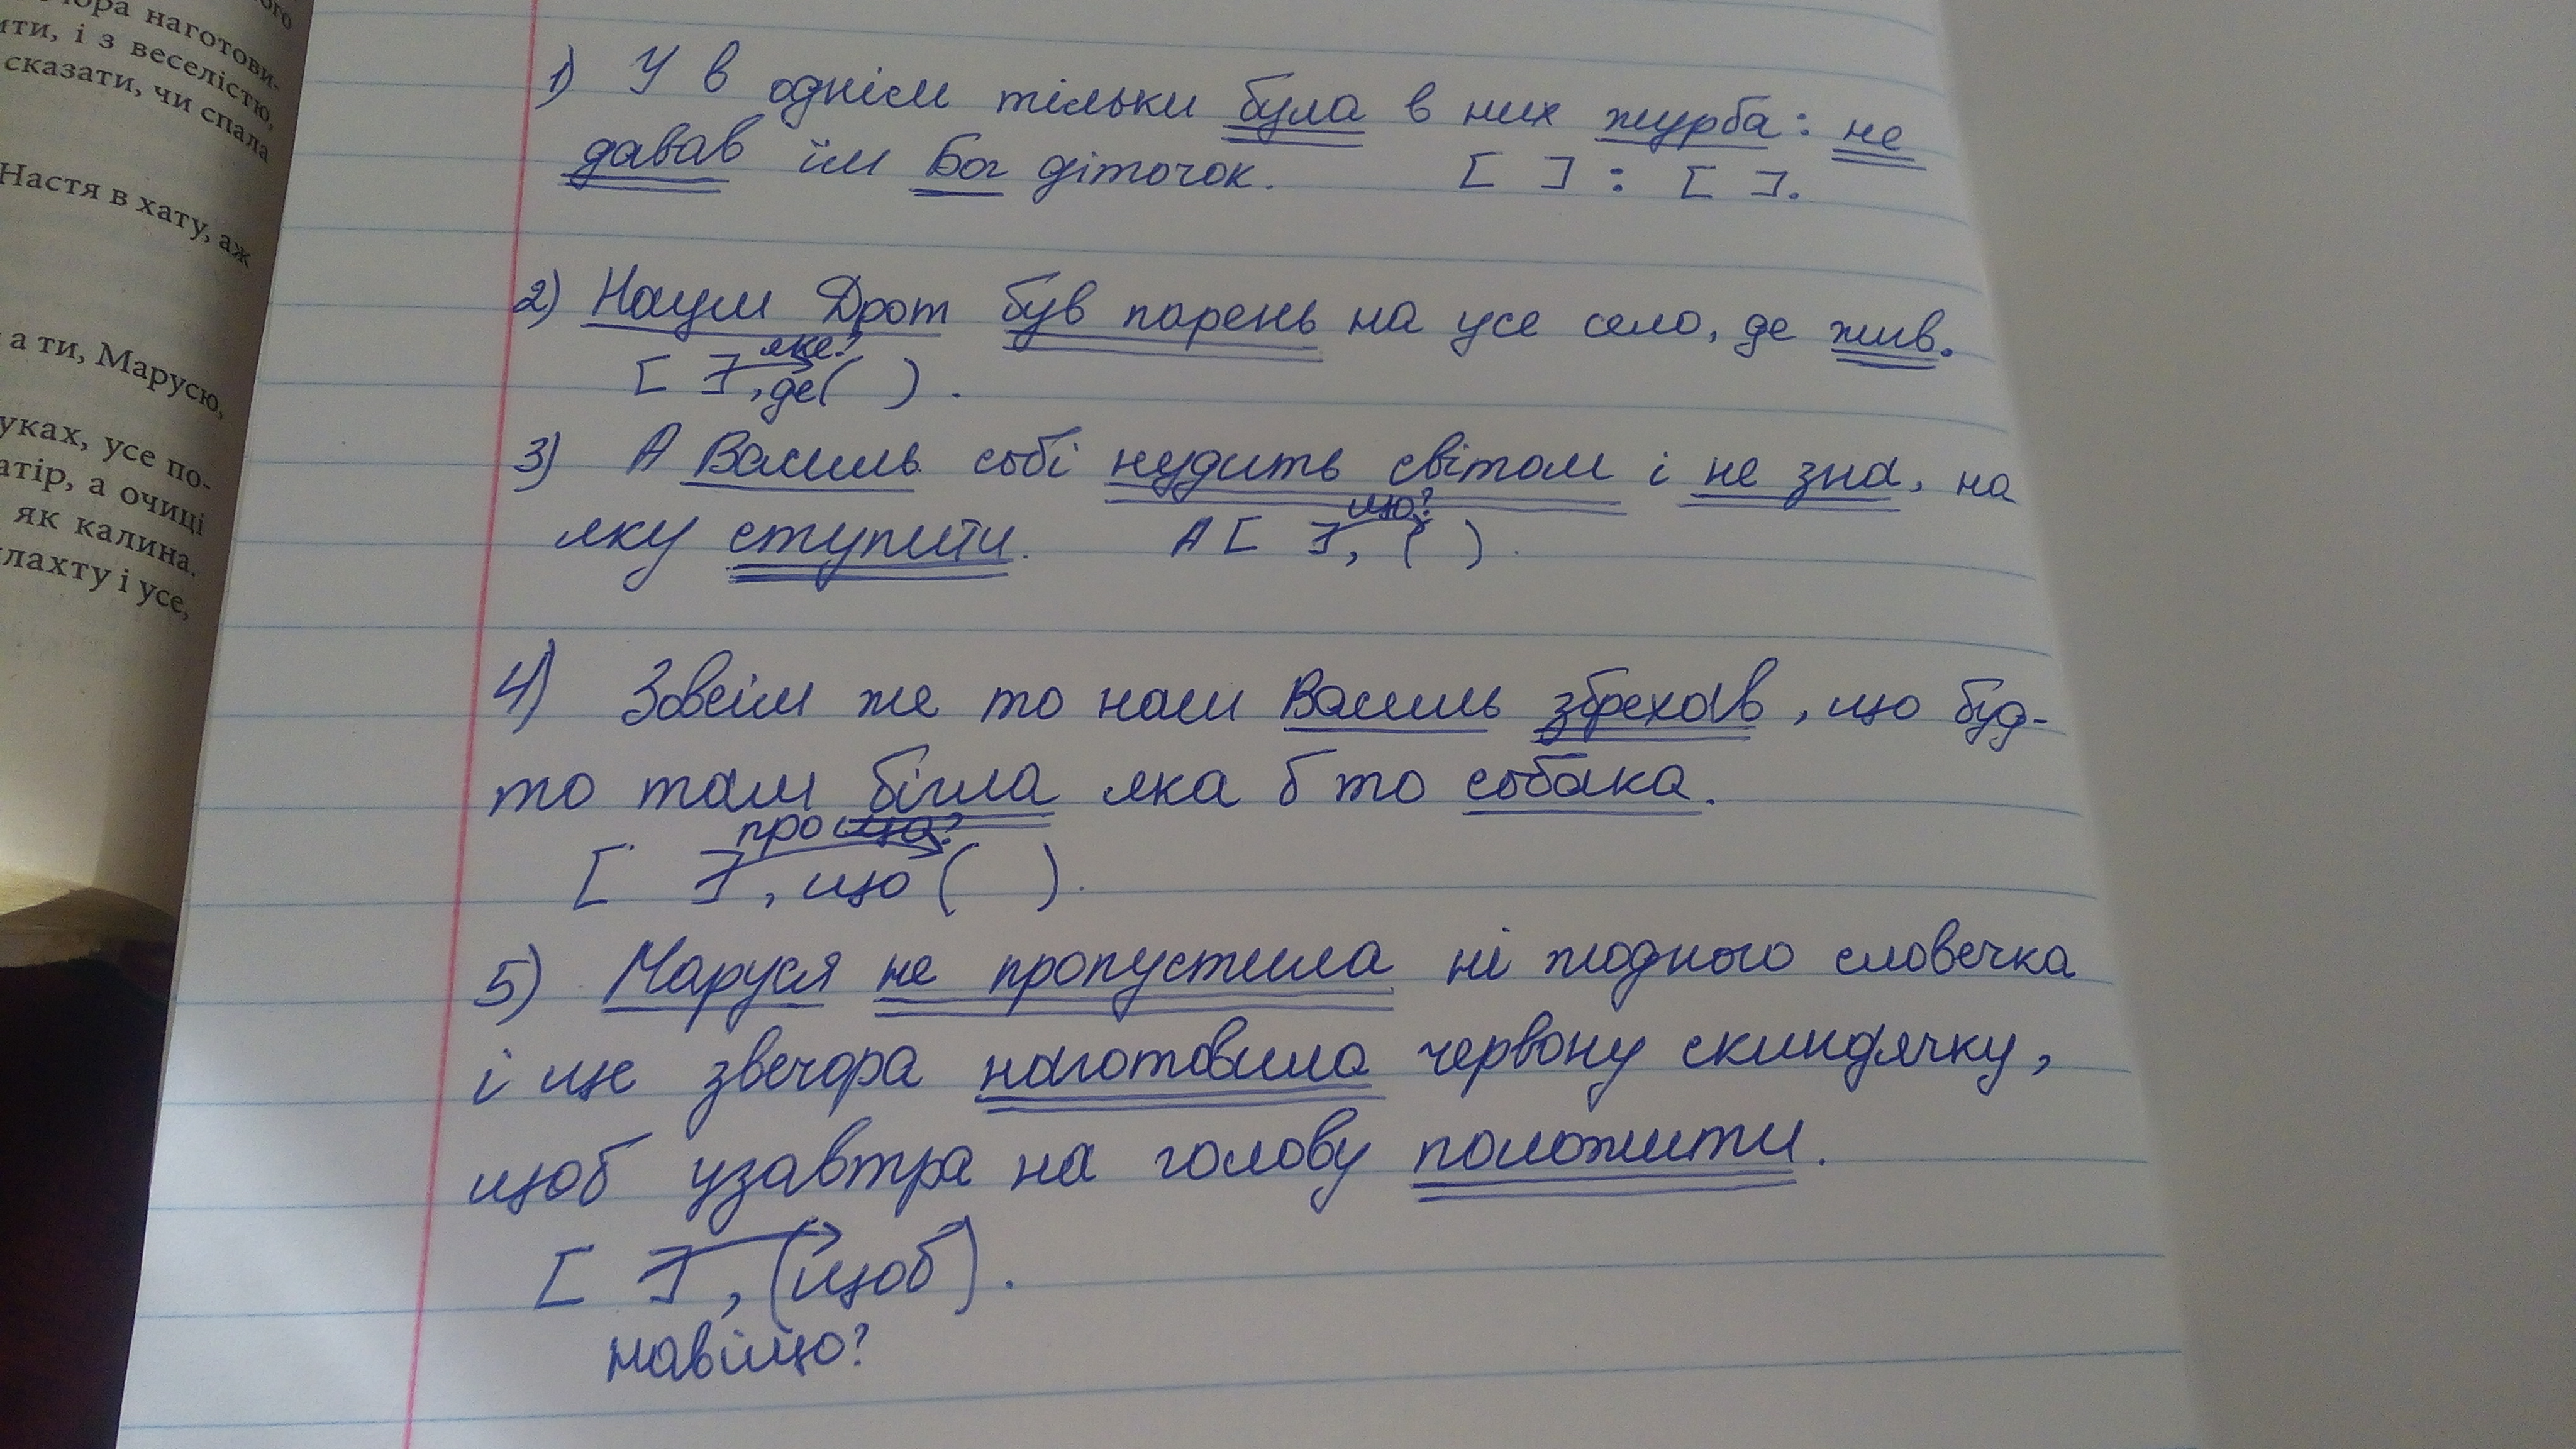 ого
чора наготови-
ити, і з веселістю,
сказати, чи спала
Настя в хату, аж
а ти, Марусю,
уках, усе по-
атір, а очиці
як калина.
лахту і усе,
1) У в однім тільки була в них журба: не
давав їм Бог діточок. [ ] : [ ].
2) Наум Дрот був парень на усе село, де жив.
яке?
[ ], де( ).
3) А Василь собі нудить світом і не зна, на
що?
яку ступити. А [ ], ( ).
4) Зовсім же то наш Василь збрехав, що буд-
то там бігла яка б то собака.
про що?
[ ], що ( ).
5) Маруся не пропустила ні жодного словечка
і ще звечора наготовила червону скиндячку,
щоб узавтра на голову положити.
[ ], (щоб).
навіщо?